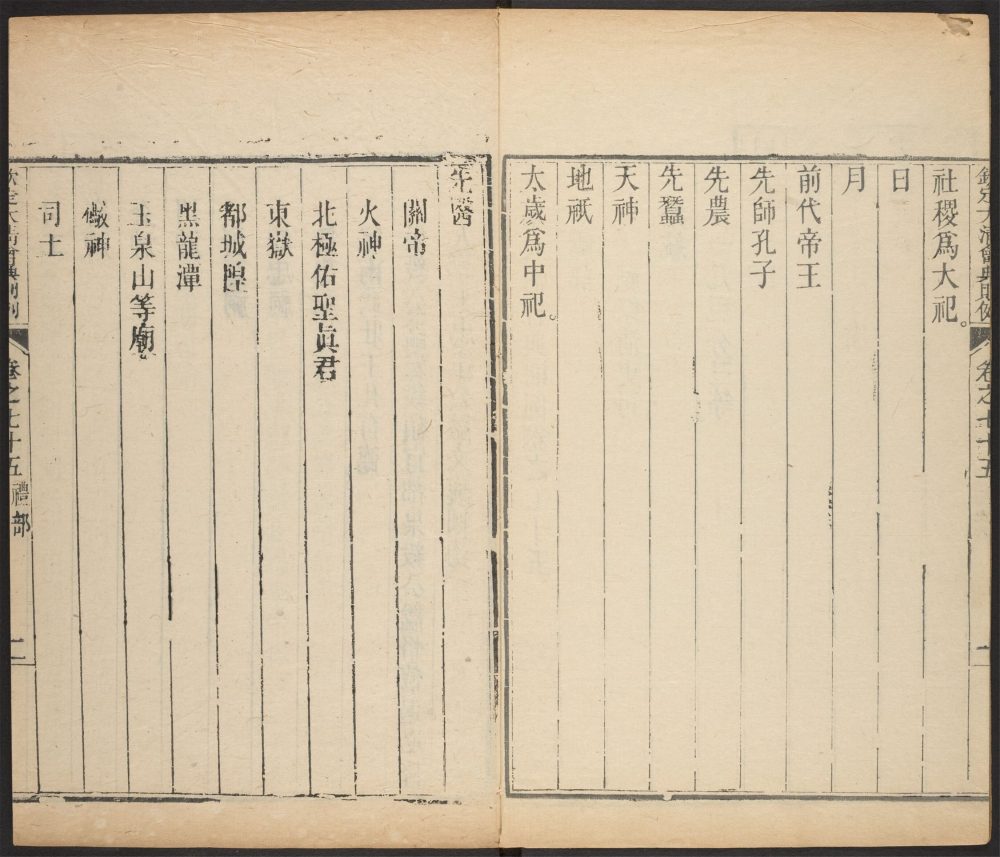 欽定大清會典則例 卷之七十五
社稷爲大祀。
日
月
前代帝王
先師孔子
先農
先蠶
天神
地祇
太歲爲中祀。
先醫
關帝
火神
北極佑聖眞君
東嶽
都城隍
黑龍潭
玉泉山等廟
礮神
司土
欽定大清會典則例 卷之七十五 禮部 二